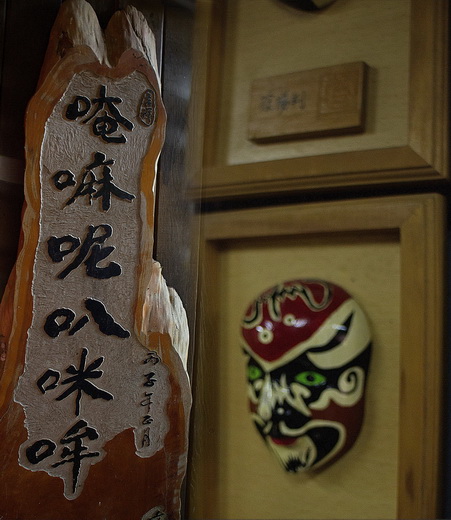 唵嘛呢叭咪哞
丙子年正月